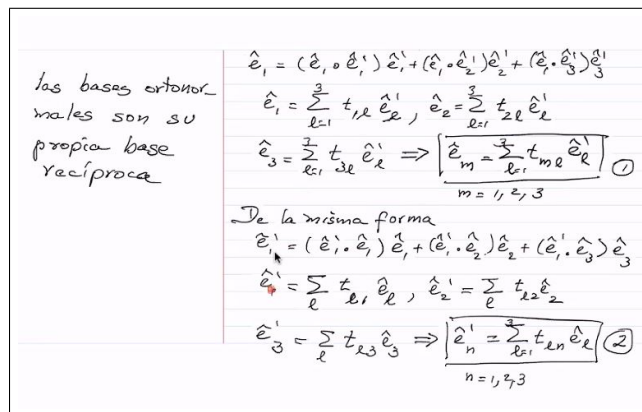 las bases ortonor_
males son su
propia base
recíproca
ê₁ = (ê₁ ∘ ê₁') ê₁' + (ê₁ · ê₂') ê₂' + (ê₁ · ê₃') ê₃'
ê₁ = ∑ₗ₌₁³ t₁ₗ êₗ' , ê₂ = ∑ₗ₌₁³ t₂ₗ êₗ'
ê₃ = ∑ₗ₌₁³ t₃ₗ êₗ' ⇒ êₘ = ∑ₗ₌₁³ tₘₗ êₗ' ①
m = 1, 2, 3
De la misma forma
ê₁' = (ê₁' · ê₁) ê₁ + (ê₁' · ê₂) ê₂ + (ê₁' · ê₃) ê₃
ê₁' = ∑ₗ tₗ₁ êₗ , ê₂' = ∑ₗ tₗ₂ ê₂
ê₃' = ∑ₗ tₗ₃ ê₃ ⇒ êₙ' = ∑ₗ₌₁³ tₗₙ êₗ ②
n = 1, 2, 3